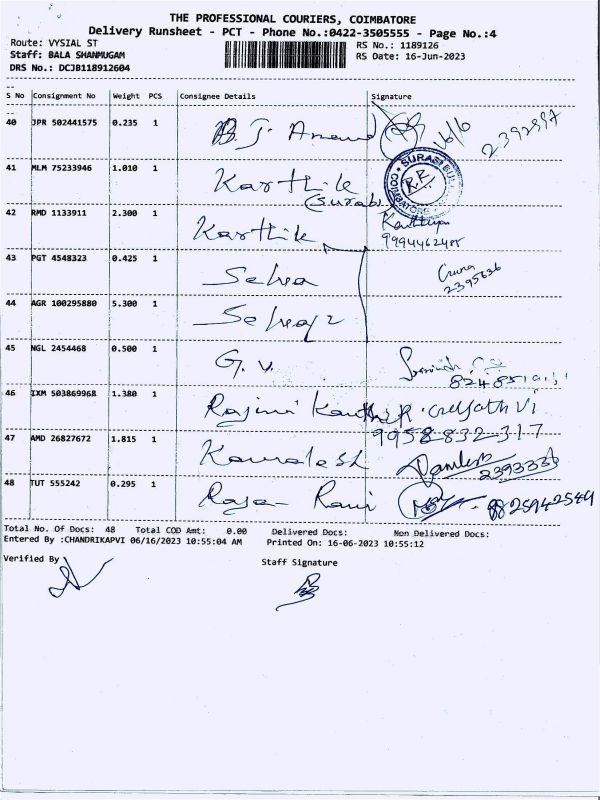 THE PROFESSIONAL COURIERS, COIMBATORE
Delivery Runsheet - PCT - Phone No.:0422-3505555 - Page No.:4
Route: VYSIAL ST RS No.: 1189126
Staff: BALA SHANMUGAM RS Date: 16-Jun-2023
DRS No.: DCJB118912604
S No Consignment No Weight PCS Consignee Details Signature
40 JPR 502441575 0.235 1 B. J. Anand 16/6
41 MLM 75233946 1.010 1 Karthik
(Surabi)
42 RMD 1133911 2.300 1 Karthik
9994462485
43 PGT 4548323 0.425 1 Selva
2395636
44 AGR 100295880 5.300 1
45 NGL 2454468 0.500 1 G. V.
46 IXM 503869968 1.380 1 Rajini
9958832317
47 AMD 26827672 1.815 1 Kamalesh
2393336
48 TUT 555242 0.295 1 Raja Rani
Total No. Of Docs: 48 Total COD Amt: 0.00 Delivered Docs: Non Delivered Docs:
Entered By :CHANDRIKAPVI 06/16/2023 10:55:04 AM Printed On: 16-06-2023 10:55:12
Verified By Staff Signature